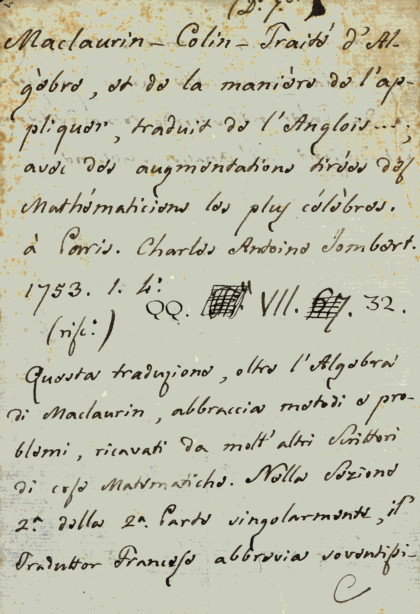 (D. 7
Maclaurin - Colin - Traité d'Al-
gèbre, et de la maniére de l'ap-
pliquer, traduit de l'Anglois ...;
avec des augmentations tirées des
Mathématiciens les plus célèbres.
à Paris. Charles Antoine Jombert.
1753. 1. 4:
QQ. VII. 32.
(risc:)
Questa traduzione, oltre l'Algebra
di Maclaurin, abbraccia metodi e pro-
blemi, ricavati da molt'altri Scrittori
di cose Matematiche. Nella Sezione
2.ª della 2.ª Parte singolarmente, il
Traduttor Francese abbrevia soventissi-